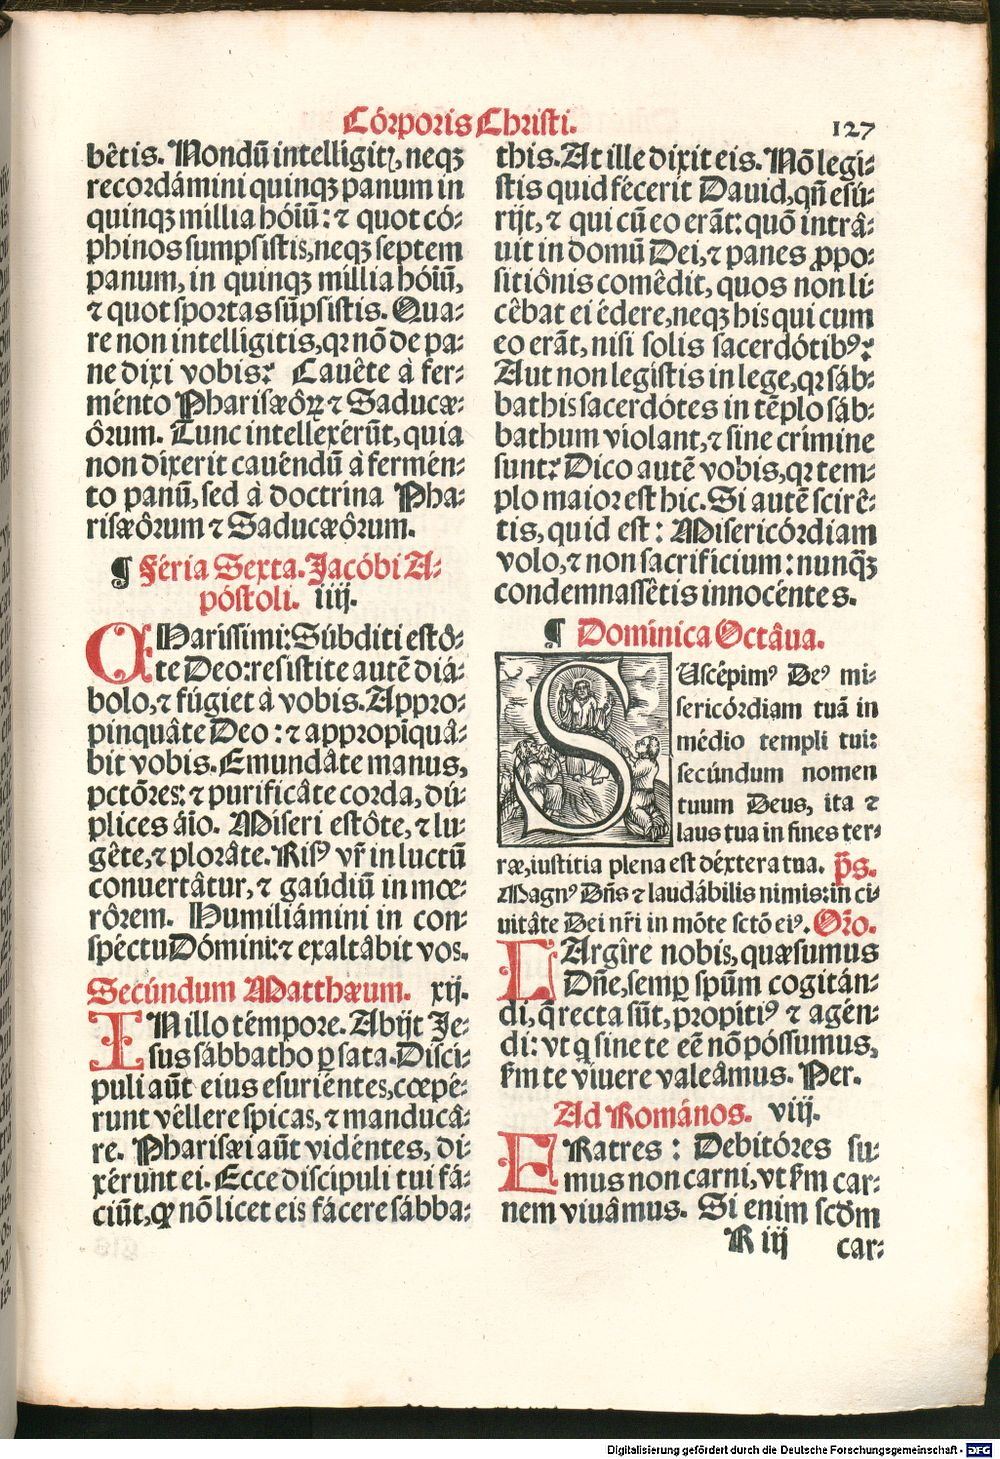 Córporis Christi.
127
bêtis. Nondũ intelligitꝭ, neqꝫ
recordámini quinqꝫ panum in
quinqꝫ millia hóiũ: ⁊ quot có-
phinos sumpsistis, neqꝫ septem
panum, in quinqꝫ millia hóiũ,
⁊ quot sportas sũpsistis. Qua-
re non intelligitis, qꝛ nõ de pa-
ne dixi vobis? Cauête à fer-
mẽnto Pharisæôꝝ ⁊ Saducæ-
ôrum. Tunc intellexérũt, quia
non dixerit cauéndũ à fermén-
to panũ, sed à doctrina Pha-
risæôrum ⁊ Saducæôrum.
¶ Féria Sexta. Jacóbi A-
póstoli. iiij.
CHarissimi: Súbditi estô-
te Deo: resistite autẽ diá-
bolo, ⁊ fúgiet à vobis. Appro-
pinquâte Deo: ⁊ appropiquâ-
bit vobis. Emundâte manus,
pctõres: ⁊ purificâte corda, dú-
plices áio. Miseri estôte, ⁊ lu-
gête, ⁊ plorâte. Risꝰ vr̃ in luctũ
conuertâtur, ⁊ gaúdiũ in mœ-
rôrem. Humiliámini in con-
spéctu Dómini: ⁊ exaltâbit vos.
Secúndum Matthæum. xij.
IN illo témpore. Abijt Je-
sus sábbatho ꝑ sata. Disci-
puli aũt eius esuriéntes, cœpé-
runt véllere spicas, ⁊ manducâ-
re. Pharisæi aũt vidéntes, di-
xérunt ei. Ecce discipuli tui fá-
ciũt, ꝙ nõ licet eis fácere sábba-
this. At ille dixit eis. Nõ legi-
stis quid fécerit Dauid, qñ esú-
rijt, ⁊ qui cũ eo erãt: quõ intrâ-
uit in domũ Dei, ⁊ panes ꝓpo-
sitiônis comêdit, quos non li-
cêbat ei édere, neqꝫ his qui cum
eo erãt, nisi solis sacerdótibꝰ?
Aut non legistis in lege, qꝛ sáb-
bathis sacerdótes in tẽplo sáb-
bathum violant, ⁊ sine crimine
sunt? Dico autẽ vobis, qꝛ tem-
plo maior est hic. Si autẽ scirê-
tis, quid est: Misericórdiam
volo, ⁊ non sacrificium: nunqꝫ̃
condemnassêtis innocéntes.
¶ Domínica Octâua.
SUscépimꝰ Deꝰ mi-
sericórdiam tuã in
médio templi tui:
secúndum nomen
tuum Deus, ita ⁊
laus tua in fines ter-
ræ, iustitia plena est déxtera tua. p̃s.
Magnꝰ Dñs ⁊ laudábilis nimis: in ci-
uitâte Dei nr̃i in mõte sctõ eiꝰ. Oŕo.
LArgîre nobis, quæsumus
Dñe, semꝑ spũm cogitán-
di, q̃ recta sũt, propitiꝰ ⁊ agén-
di: vt q sine te eẽ nõ póssumus,
s̃m te viuere valeâmus. Per.
Ad Romános. viij.
FRatres: Debitóres su-
mus non carni, vt s̃m car-
nem viuâmus. Si enim scd̃m
R iij
car-
Digitalisierung gefördert durch die Deutsche Forschungsgemeinschaft - DFG